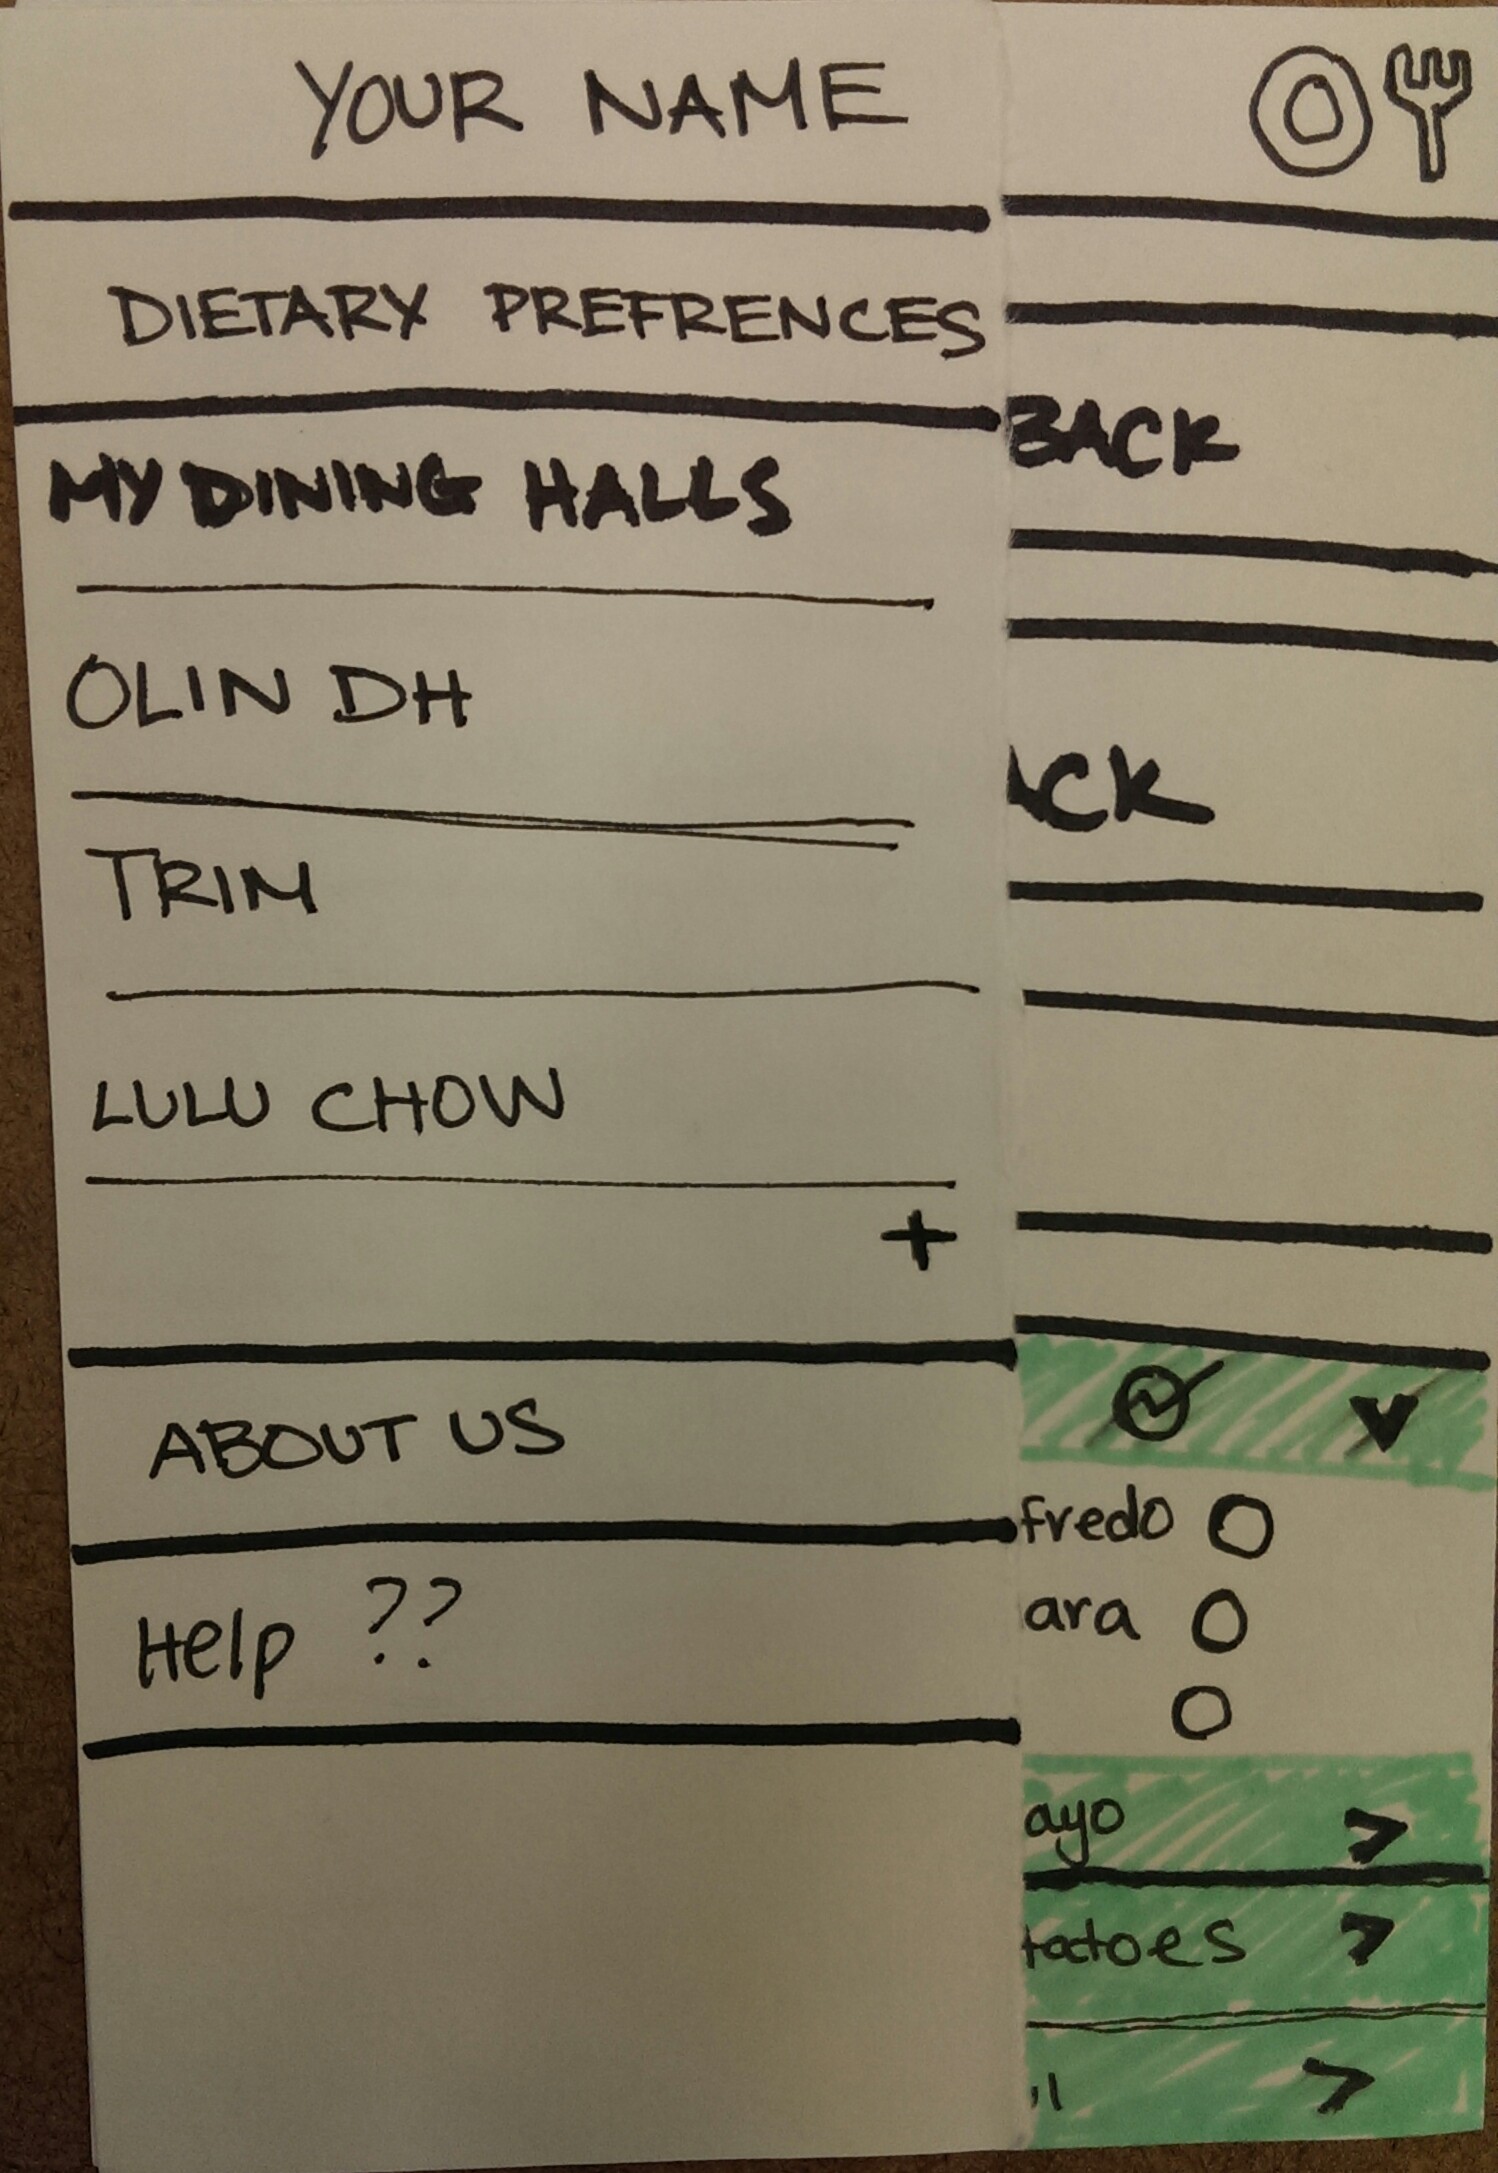 YOUR NAME
DIETARY PREFRENCES
MY DINING HALLS
OLIN DH
TRIM
LULU CHOW
+
ABOUT US
Help ??
BACK
ACK
fredo
ara
ayo
tatoes